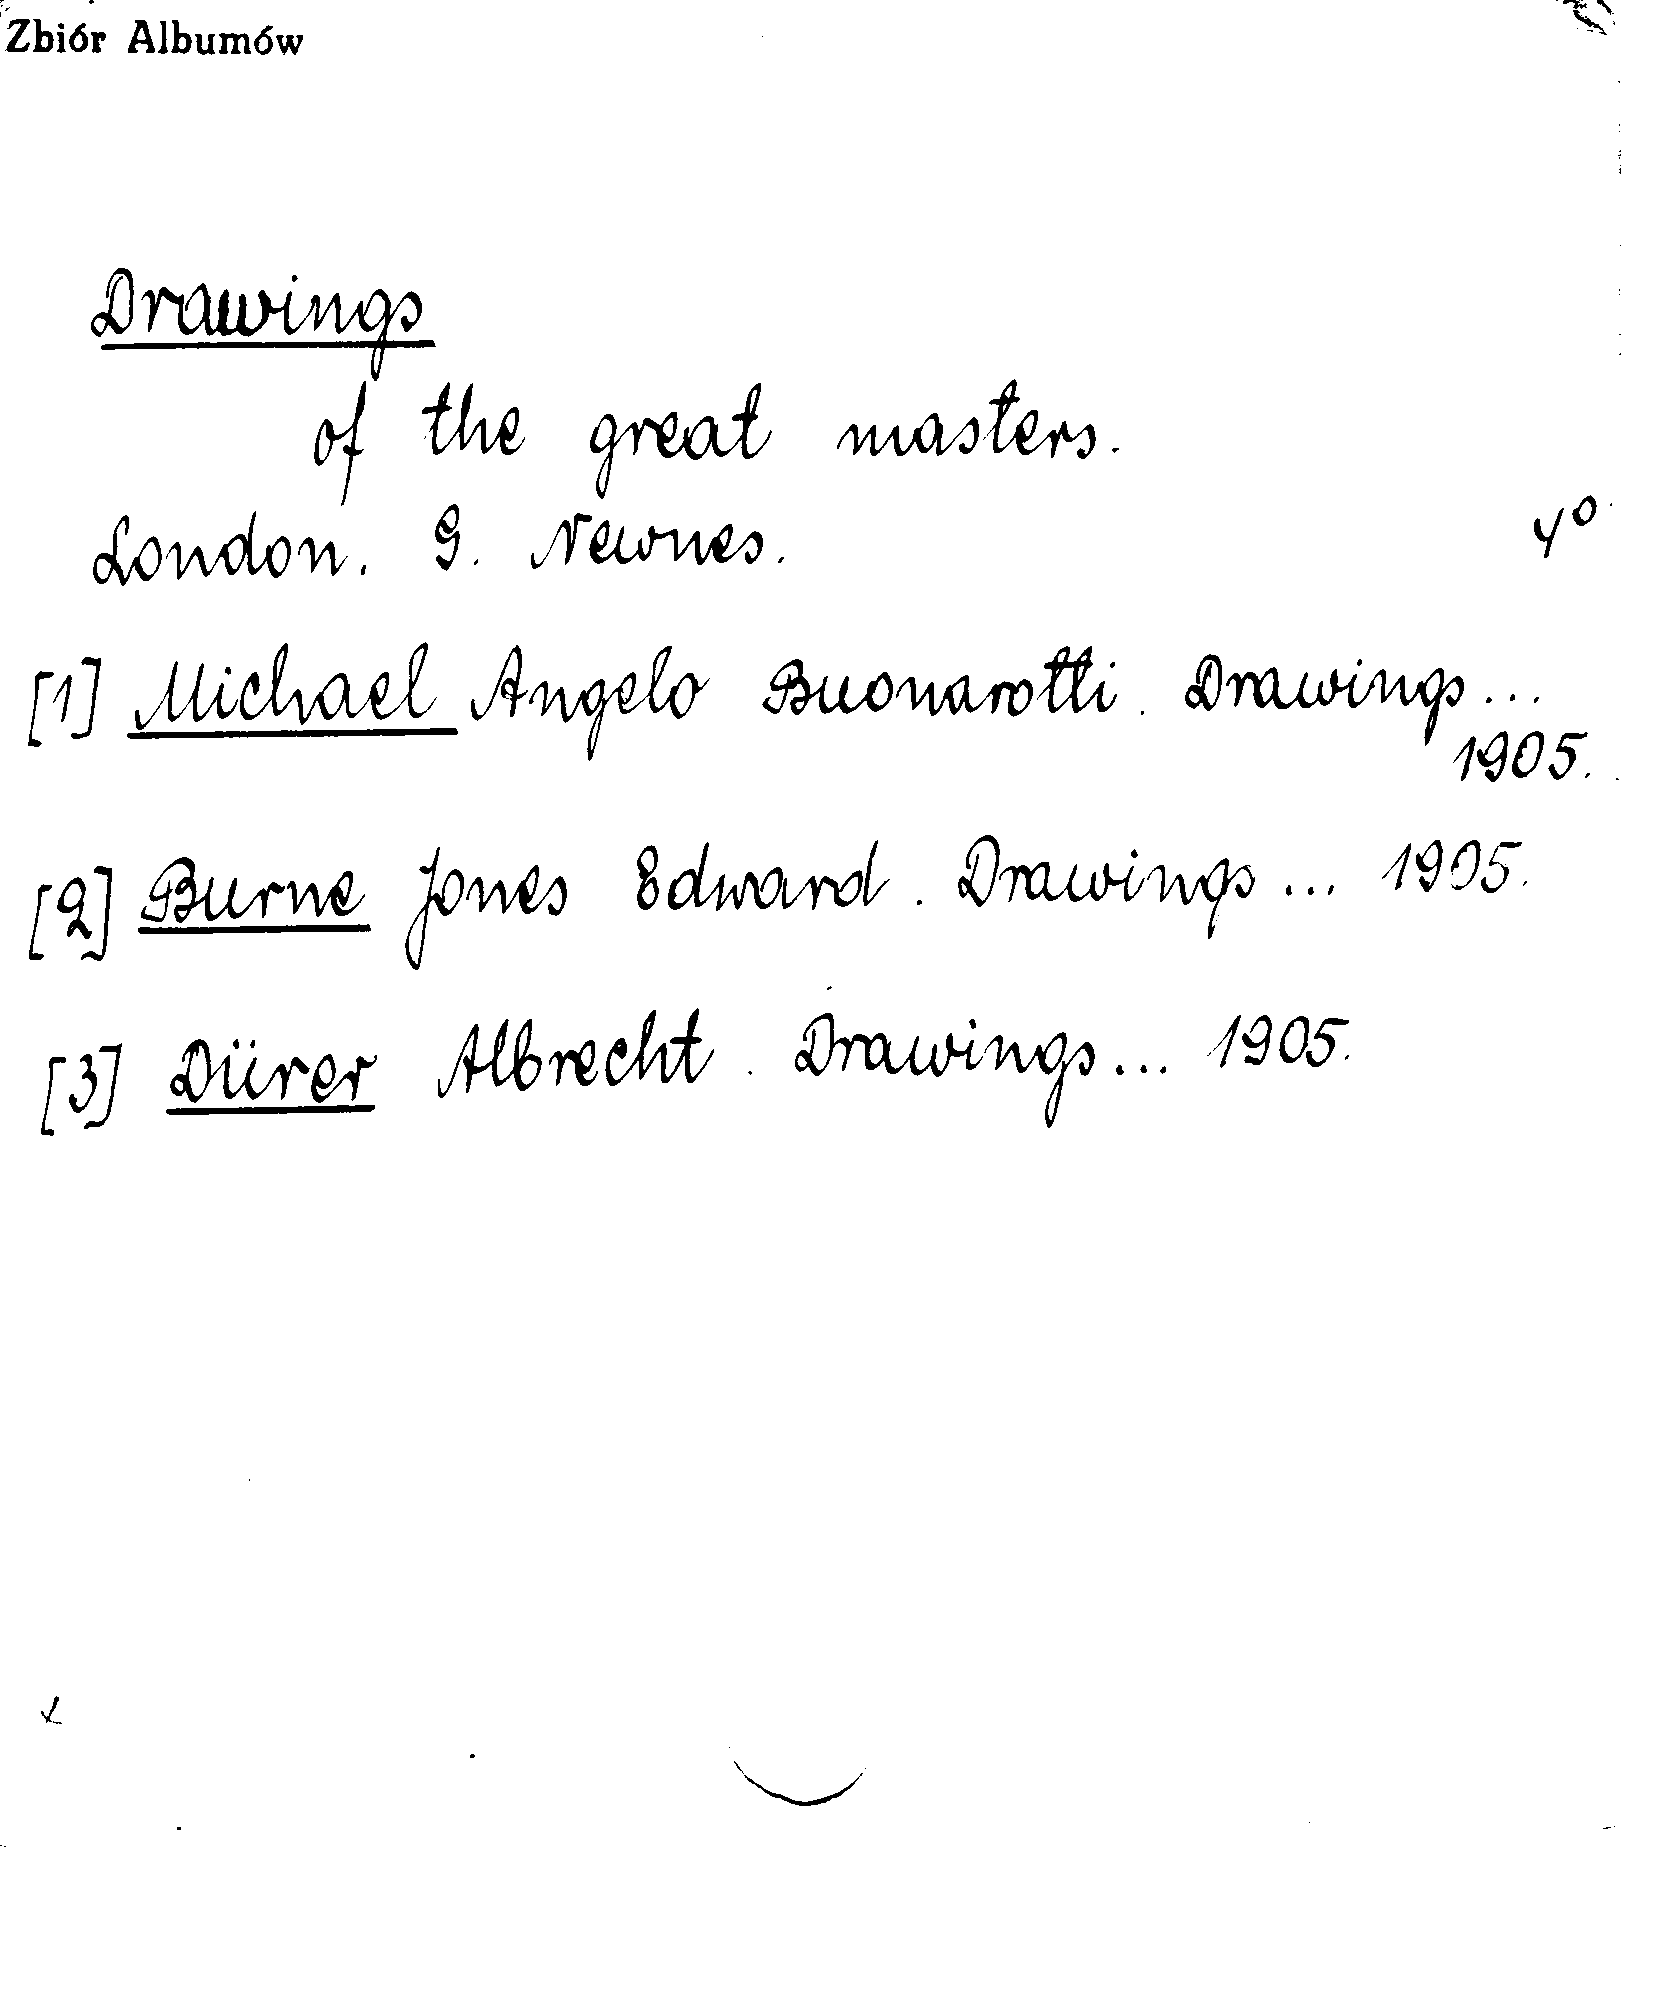 Zbiór Albumów
Drawings
of the great masters.
London. G. Newnes. 4º
[1] Michael Angelo Buonarotti. Drawings...
1905.
[2] Burne Jones Edward. Drawings... 1905.
[3] Dürer Albrecht. Drawings... 1905.